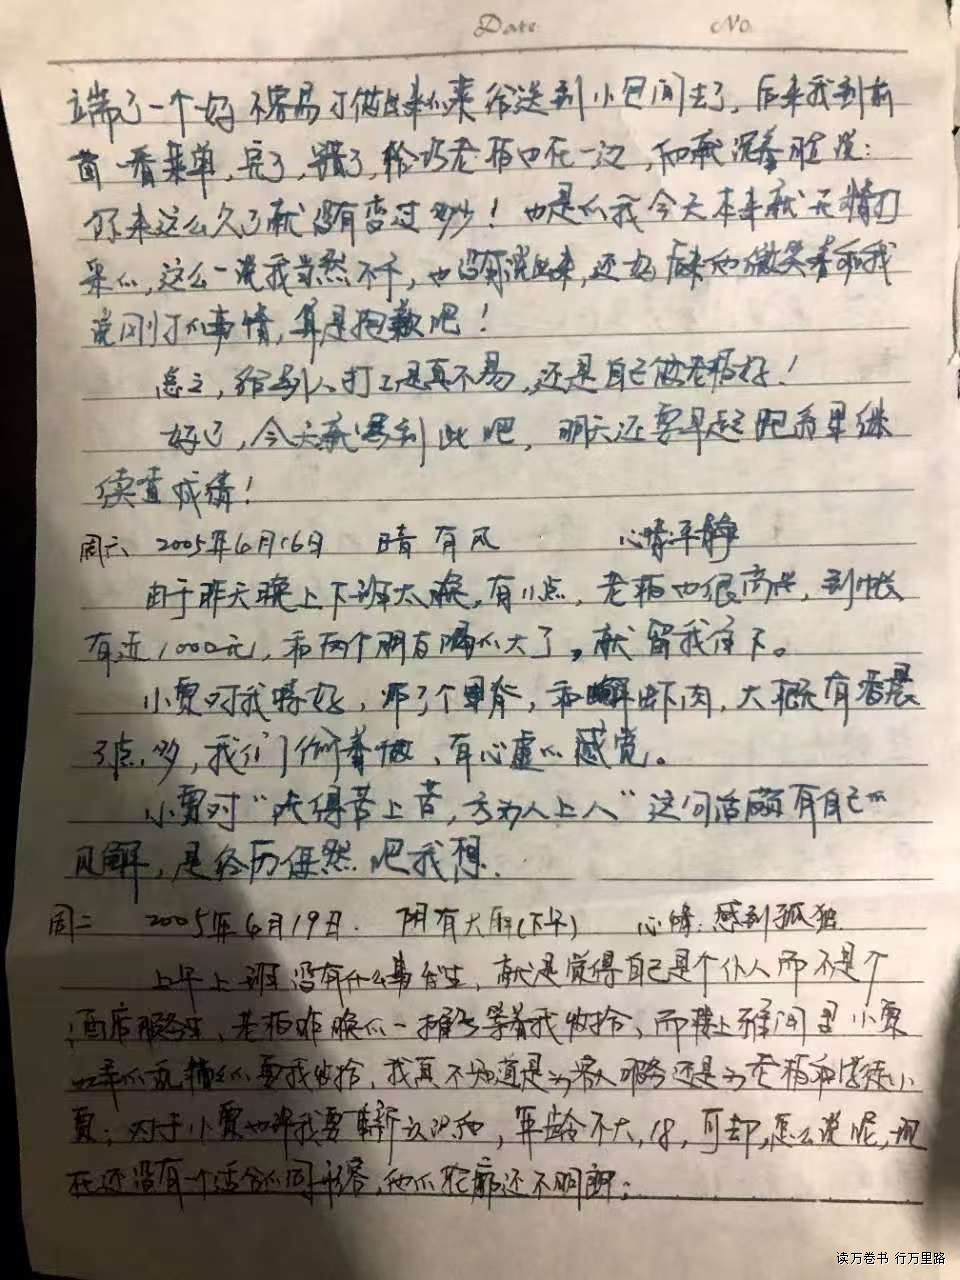 Date No.
端了一个好不容易才做出来的菜给送到小包间去了,后来我到前
面一看菜单,完了,错了,恰巧老板也在一边,和颜说:
你来这么久了就没有变过吵!也是的我今天本来就无精打
采的,这么一说我当然不干,也没有说出来,还好后来他微笑着和我
说刚才的事情,算是抱歉吧!
总之,给别人打工是真不易,还是自己做老板好!
好了,今天就写到此吧,明天还要早起跑去里继
续查成绩!
周六 2005年6月16日 晴 有风 心情:平静
由于昨天晚上下班太晚,有11点,老板也很高兴,到帐
有近1000元,和两个朋友喝的大了,就留我住下。
小贾对我特好,那了个里脊,和虾肉,大概有凌晨
3点多,我们俩着做,有心虚的感觉。
小贾对“吃得苦上苦,方为人上人”这句话颇有自己的
见解,是经历使然吧我想.
周二 2005年6月19日. 阴有大雨(下午) 心情:感到孤独
上午上班没有什么事发生,就是觉得自己是个仆人而不是个
酒店服务生,老板昨晚的一摊等着我收拾,而楼上雅间里小贾
的乱糟的要我收拾,我真不知道是为客人服务还是为老板和学徒小
贾;对于小贾也许我要重新认识他,年龄不大,18,可却,怎么说呢,现
在还没有一个适合的词形容,他的轮廓还不明朗;
读万卷书 行万里路